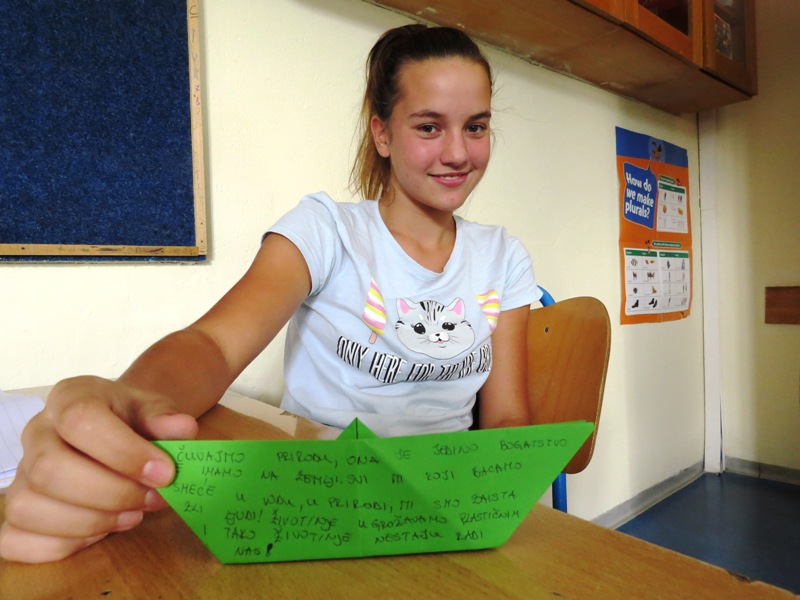 How do
we make
plurals?
ONLY HERE FOR THE ICE
ČUVAJMO PRIRODU, ONA JE JEDINO BOGATSTVO
IMAMO NA ZEMLJI. SVI MI KOJI BACAMO
SMEĆE U VODU, U PRIRODI, MI SMO ZAISTA
ZLI LJUDI! ŽIVOTINJE UGROŽAVAMO PLASTIČNIM
I TAKO ŽIVOTINJE NESTAJU RADI
NAS!